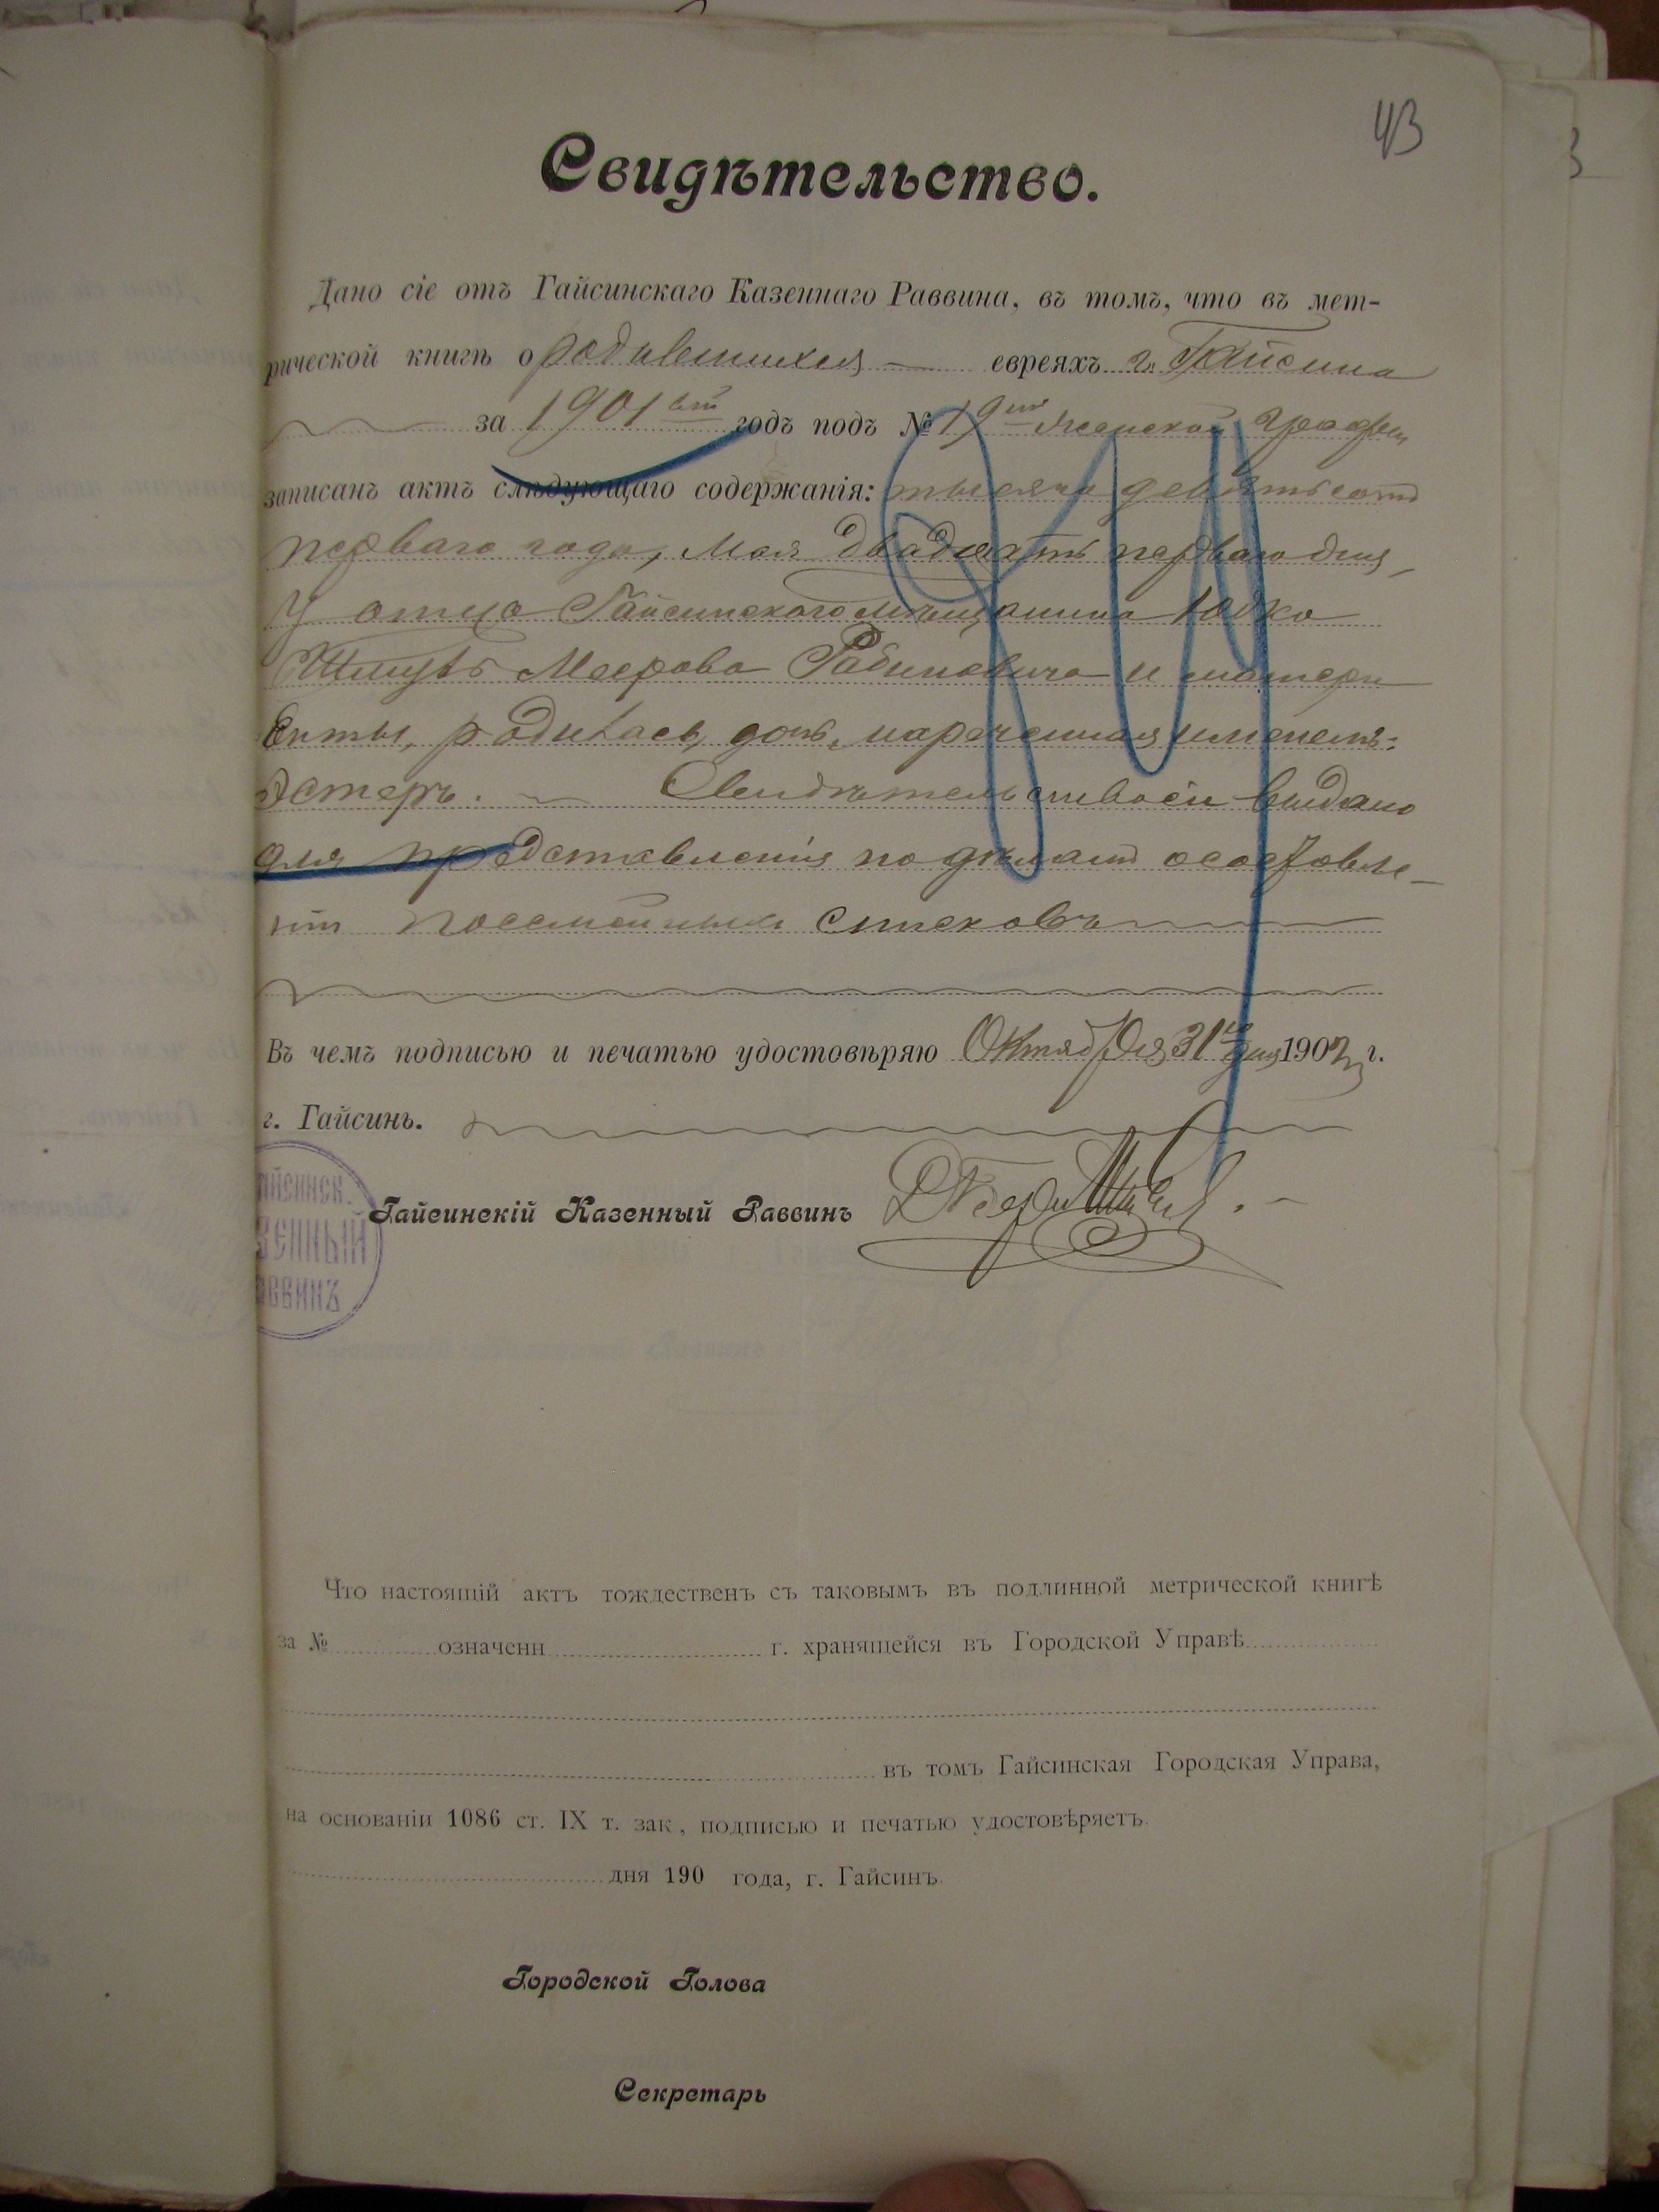 43
Свидѣтельство.
Дано сіе отъ Гайсинскаго Казеннаго Раввина, въ томъ, что въ мет-
рической книгѣ о родившихся евреяхъ г. Гайсина
за 1901 годъ подъ № 19 женской графы
записанъ актъ слѣдующаго содержанія: тысяча девятьсотъ
перваго года, Мая двадцать перваго дня,
у отца Гайсинского мѣщанина
Шмуль Меерова Рабиновича и матери
Енты, родилась дочь, нареченная именемъ:
Эстеръ. Свидѣтельство сіе выдано
для представленія по дѣламъ о составле-
ніи посемейныхъ списковъ
Въ чемъ подписью и печатью удостовѣряю Октября 31 дня 1902 г.
г. Гайсинъ.
Гайсинскій Казенный Раввинъ
айсинск.
зенный
аввинъ
Что настоящій актъ тождественъ съ таковымъ въ подлинной метрической книгѣ
за № означенн г. хранящейся въ Городской Управѣ
въ томъ Гайсинская Городская Управа,
на основаніи 1086 ст. IX т. зак, подписью и печатью удостовѣряетъ.
дня 190 года, г. Гайсинъ.
Городской Голова
Секретарь